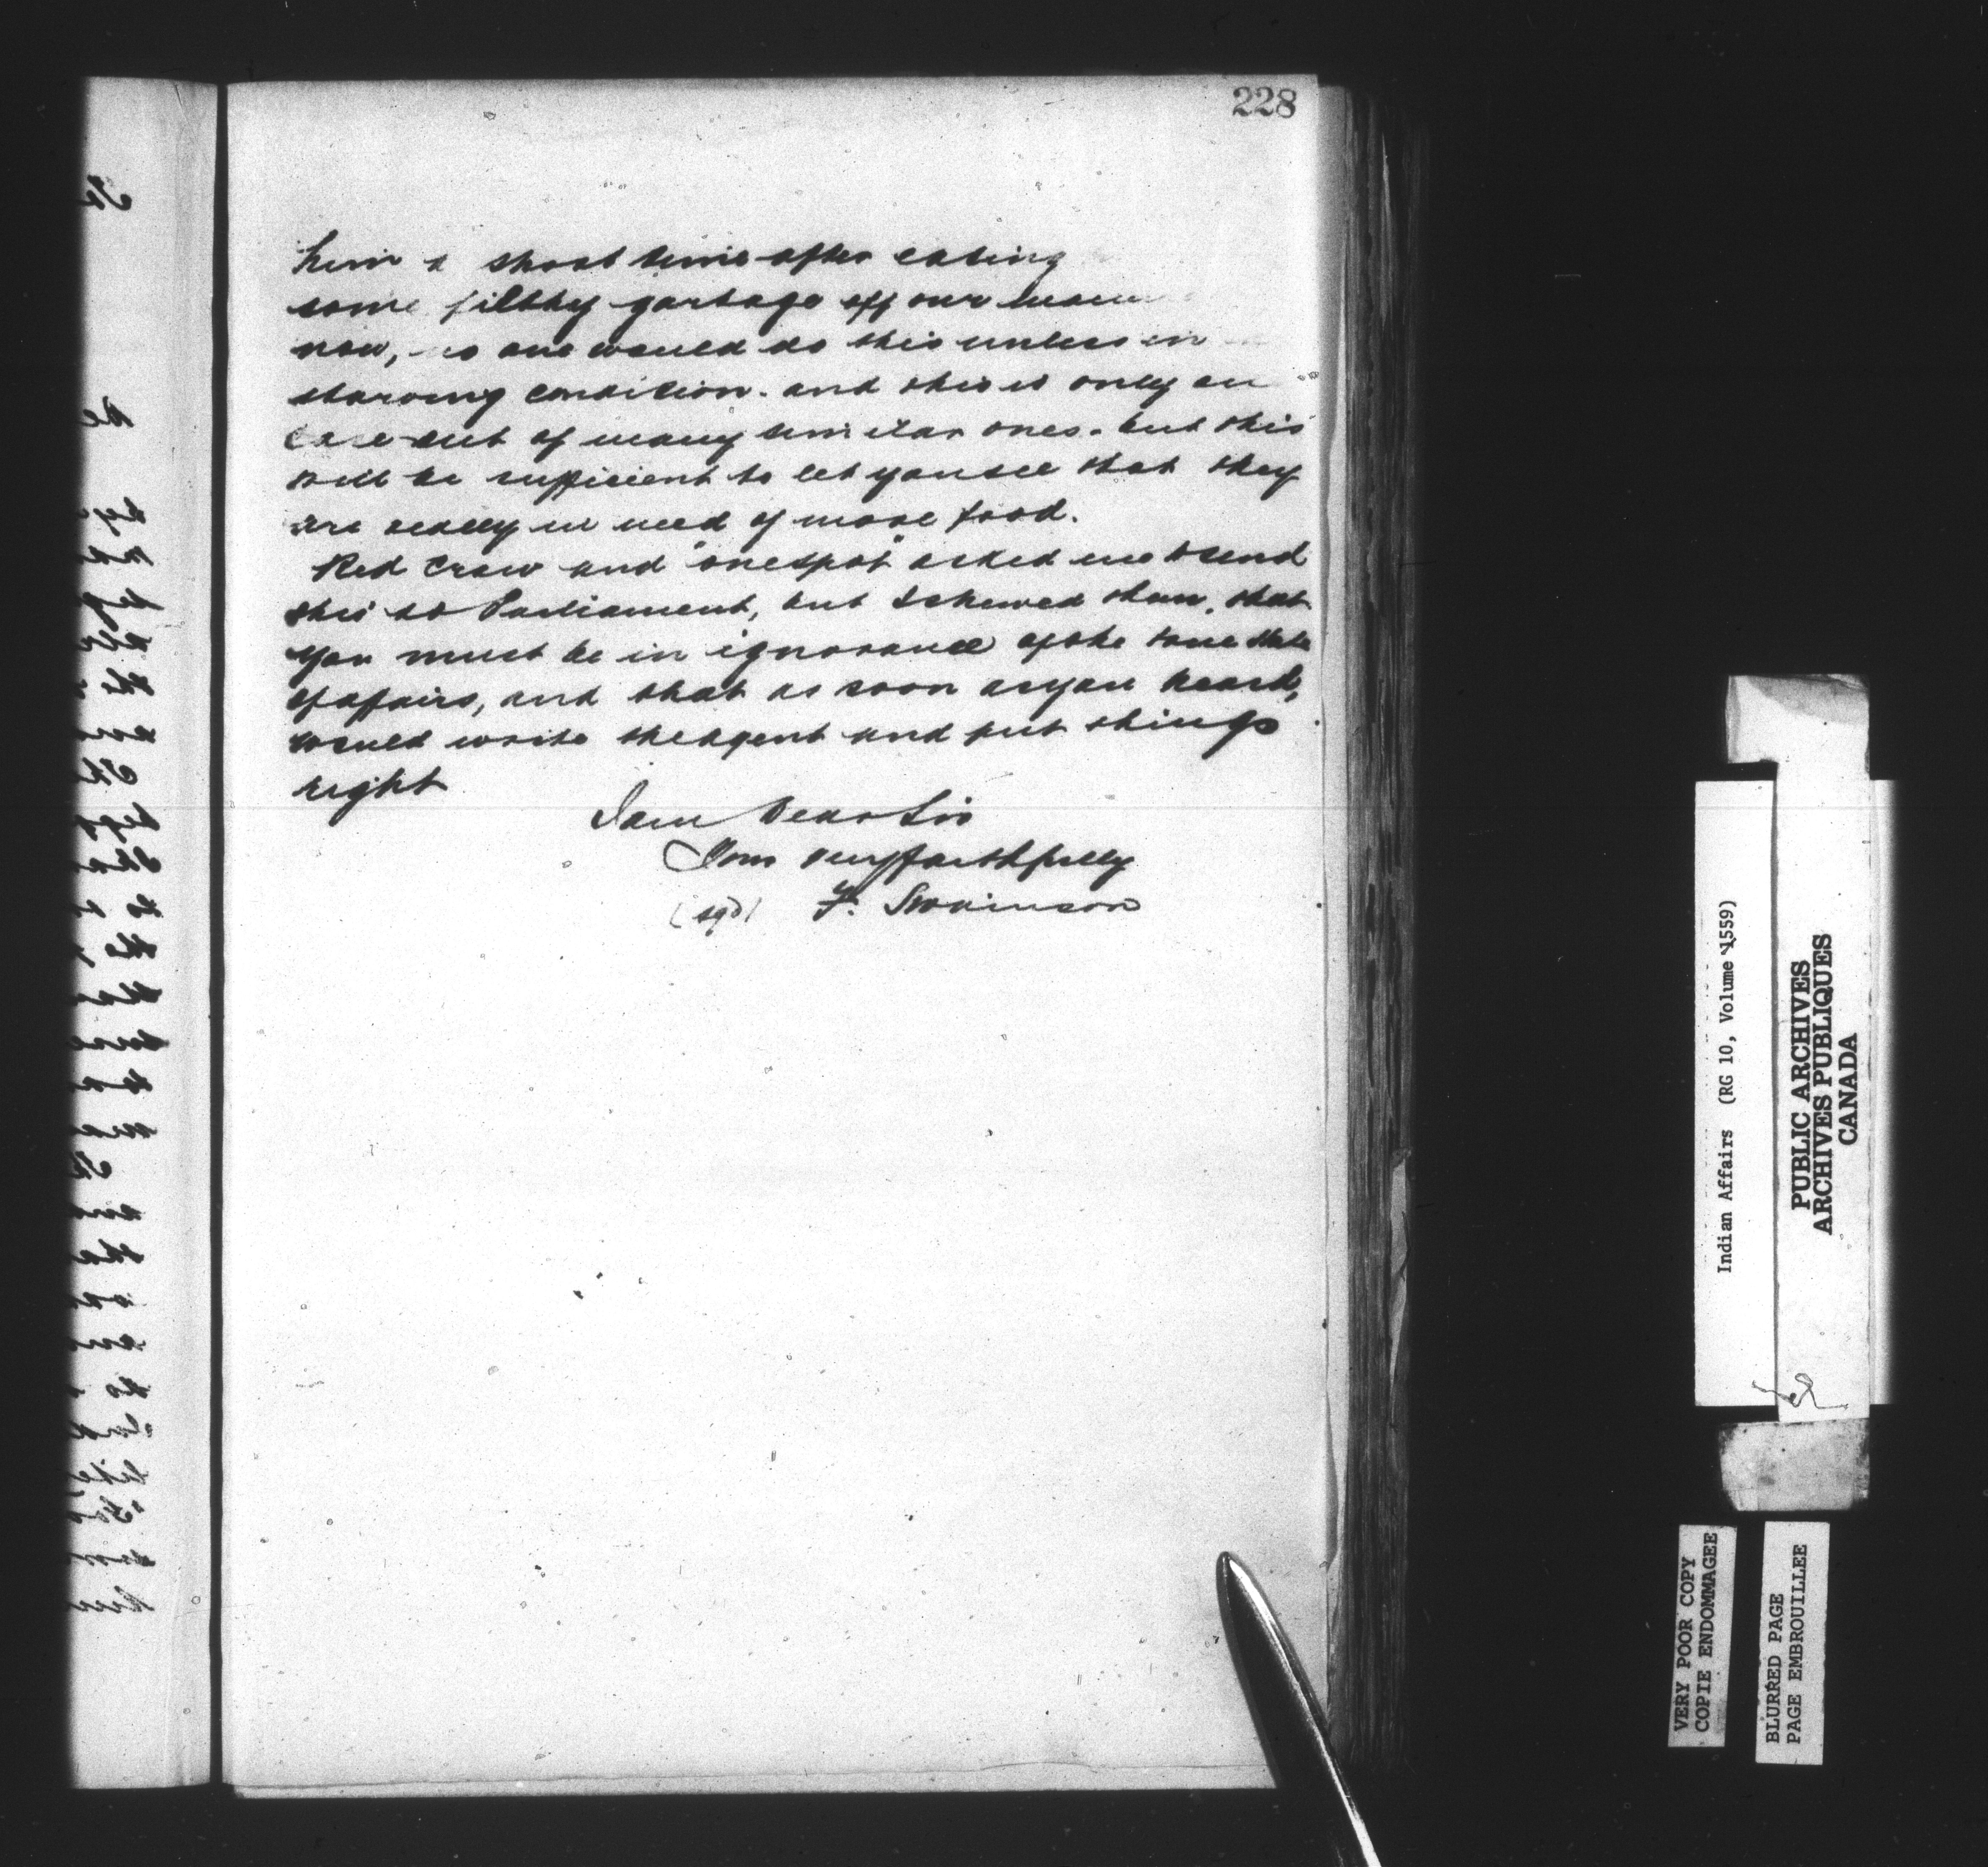 228
him a short time after eating
some filthy garbage off our
now, no one would do this unless in
starving condition. and this is only on
case out of many similar ones. but this
will be sufficient to let you see that they
are really in need of more food.
Red Crow and "onespot" asked me to send
this to Parliament, but I shewed them, that
you must be in ignorance of the true state
of affairs, and that as soon as you heard,
would write the agent and put things
right
I am Dear Sir
Yours very faithfully
(sgd) F. Swainson
Indian Affairs (RG 10, Volume 1559)
PUBLIC ARCHIVES
ARCHIVES PUBLIQUES
CANADA
VERY POOR COPY
COPIE ENDOMMAGEE
BLURRED PAGE
PAGE EMBROUILLEE